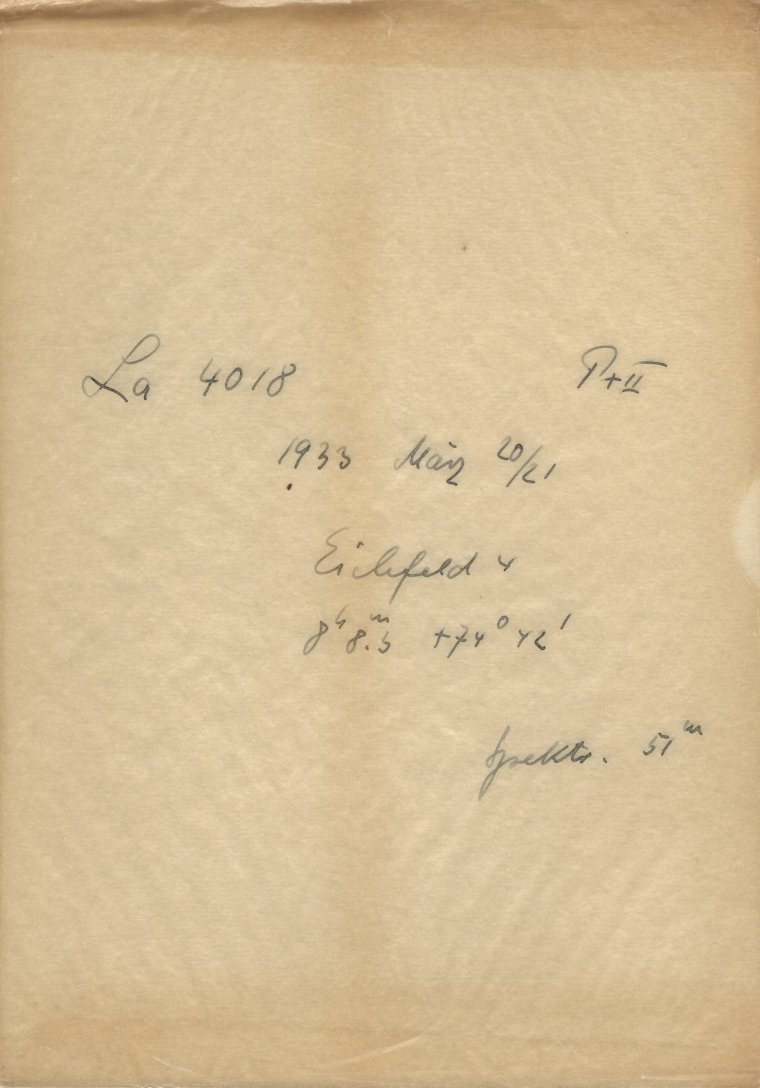 La 4018 P+II
1933 März 20/21
Eichfeld 4
8h 8.m3 +74° 42'
Spektr. 51m